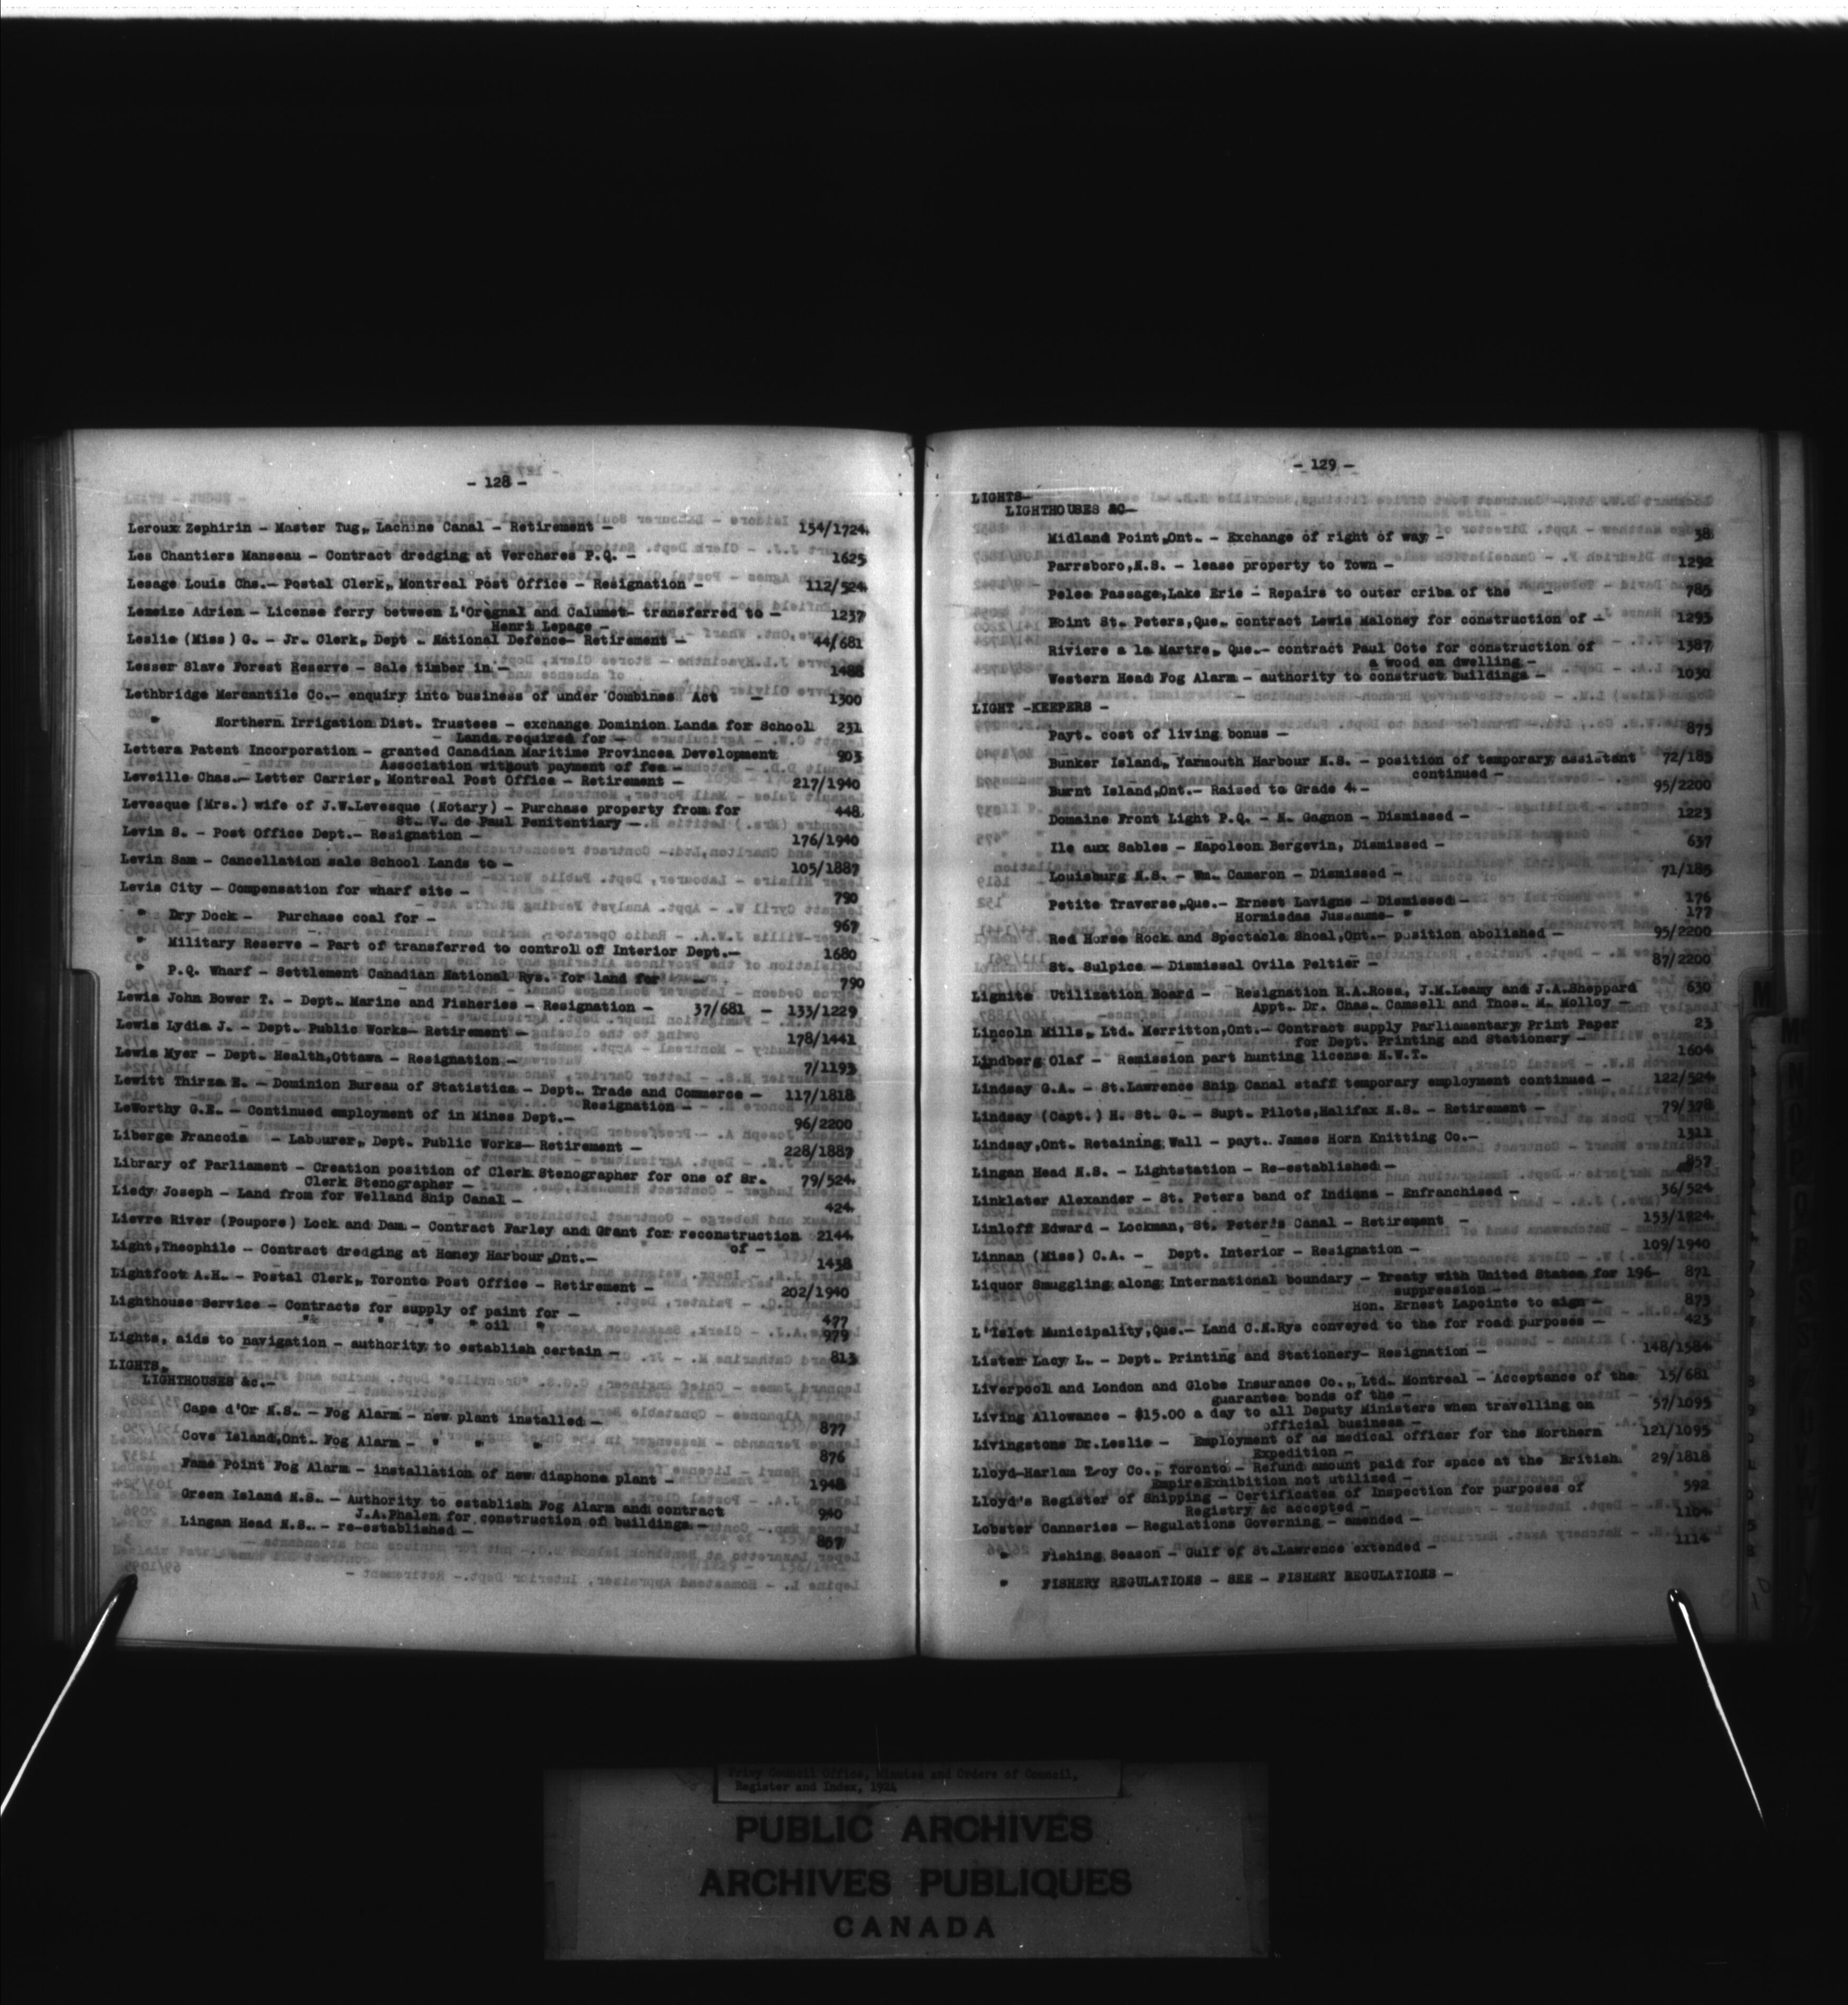 - 128 -
Leroux Zephirin - Master Tug, Lachine Canal - Retirement - 154/1724.
Les Chantiers Manseau - Contract dredging at Vercheres P.Q. - 1625
Lesage Louis Chs.- Postal Clerk, Montreal Post Office - Resignation - 112/524
Lemeize Adrien - License ferry between L'Oregnal and Calumet- transferred to - 1237
Henri Lepage -
Leslie (Miss) G. - Jr. Clerk, Dept - National Defence- Retirement - 44/681
Lesser Slave Forest Reserve - Sale timber in - 1488
Lethbridge Mercantile Co.- enquiry into business of under Combines Act - 1300
" Northern Irrigation Dist. Trustees - exchange Dominion Lands for School 231
- Lands required for -
Letters Patent Incorporation - granted Canadian Maritime Provinces Development 903
Association without payment of fee -
Leveille Chas.- Letter Carrier, Montreal Post Office - Retirement - 217/1940
Levesque (Mrs.) wife of J.W.Levesque (Notary) - Purchase property from for 448
St. V. de Paul Penitentiary -
Levin S. - Post Office Dept.- Resignation - 176/1940
Levin Sam - Cancellation sale School Lands to - 105/1887
Levis City - Compensation for wharf site - 790
" Dry Dock - Purchase coal for - 967
" Military Reserve - Part of transferred to control of Interior Dept.- 1680
" P.Q. Wharf - Settlement Canadian National Rys. for land for - 790
Lewis John Bower T. - Dept. Marine and Fisheries - Resignation - 37/681 - 133/1229
Lewis Lydia J. - Dept. Public Works- Retirement - 178/1441
Lewis Myer - Dept. Health,Ottawa - Resignation - 7/1193
Lewitt Thirza E. - Dominion Bureau of Statistics - Dept. Trade and Commerce - 117/1818
Resignation -
LeWorthy G.E. - Continued employment of in Mines Dept.- 96/2200
Liberge Francois - Labourer, Dept. Public Works- Retirement - 228/1887
Library of Parliament - Creation position of Clerk Stenographer for one of Sr. 79/524
Clerk Stenographer -
Liedy Joseph - Land from for Welland Ship Canal - 424
Lievre River (Poupore) Lock and Dam - Contract Farley and Grant for reconstruction 2144
of -
Light,Theophile - Contract dredging at Honey Harbour,Ont.- 1438
Lightfoot A.H. - Postal Clerk, Toronto Post Office - Retirement - 202/1940
Lighthouse Service - Contracts for supply of paint for - 477
" " " " oil " 979
Lights, aids to navigation - authority to establish certain - 813
LIGHTS,
LIGHTHOUSES &c.-
Cape d'Or N.S. - Fog Alarm - new plant installed - 877
Cove Island,Ont. Fog Alarm - " " " 876
Fame Point Fog Alarm - installation of new diaphone plant - 1948
Green Island N.S. - Authority to establish Fog Alarm and contract 940
J.A.Phalen for construction of buildings -
Lingan Head N.S. - re-established - 857
- 129 -
LIGHTS-
LIGHTHOUSES &C-
Midland Point,Ont. - Exchange of right of way - 38
Parrsboro,N.S. - lease property to Town - 1292
Pelee Passage,Lake Erie - Repairs to outer cribs of the - 785
Point St. Peters,Que. contract Lewis Maloney for construction of - 1293
Riviere a la Martre, Que.- contract Paul Cote for construction of 1387
a wood en dwelling -
Western Head Fog Alarm - authority to construct buildings - 1030
LIGHT -KEEPERS -
Payt. cost of living bonus - 875
Bunker Island, Yarmouth Harbour N.S. - position of temporary assistant 72/185
continued -
Burnt Island,Ont.- Raised to Grade 4 - 95/2200
Domaine Front Light P.Q. - N. Gagnon - Dismissed - 1223
Ile aux Sables - Napoleon Bergevin, Dismissed - 637
Louisburg N.S. - Wm. Cameron - Dismissed - 71/185
Petite Traverse,Que.- Ernest Lavigne - Dismissed - 176
Hormisdas Jussaume- " 177
Red Horse Rock and Spectacle Shoal,Ont.- position abolished - 95/2200
St. Sulpice - Dismissal Ovila Peltier - 87/2200
Lignite Utilization Board - Resignation R.A.Ross, J.M.Leamy and J.A.Sheppard 630
Appt. Dr. Chas. Camsell and Thos. M. Molloy -
Lincoln Mills, Ltd. Merritton,Ont.- Contract supply Parliamentary Print Paper 23
for Dept. Printing and Stationery -
Lindberg Olaf - Remission part hunting license N.W.T. 1604
Lindsay G.A. - St.Lawrence Ship Canal staff temporary employment continued - 122/524
Lindsay (Capt.) H. St. G. - Supt. Pilots,Halifax N.S. - Retirement - 79/378
Lindsay,Ont. Retaining Wall - payt. James Horn Knitting Co.- 1311
Lingan Head N.S. - Lightstation - Re-established - 857
Linklater Alexander - St. Peters band of Indians - Enfranchised - 36/524
Linloff Edward - Lockman, St. Peter's Canal - Retirement - 153/1724
Linnan (Miss) C.A. - Dept. Interior - Resignation - 109/1940
Liquor Smuggling along International boundary - Treaty with United States for 196- 871
suppression -
Hon. Ernest Lapointe to sign - 873
L'Islet Municipality,Que.- Land C.N.Rys conveyed to the for road purposes - 423
Lister Lacy L. - Dept. Printing and Stationery- Resignation - 148/1584
Liverpool and London and Globe Insurance Co., Ltd. Montreal - Acceptance of the 15/681
guarantee bonds of the -
Living Allowance - $15.00 a day to all Deputy Ministers when travelling on 57/1095
official business -
Livingstone Dr.Leslie - Employment of as medical officer for the Northern 121/1095
Expedition -
Lloyd-Harlam Troy Co., Toronto - Refund amount paid for space at the British 29/1818
EmpireExhibition not utilized -
Lloyd's Register of Shipping - Certificates of Inspection for purposes of 592
Registry &c accepted -
Lobster Canneries - Regulations Governing - amended - 1104
" Fishing Season - Gulf of St.Lawrence extended - 1114
" FISHERY REGULATIONS - SEE - FISHERY REGULATIONS -
Privy Council Office, Minutes and Orders of Council,
Register and Index, 1924
PUBLIC ARCHIVES
ARCHIVES PUBLIQUES
CANADA